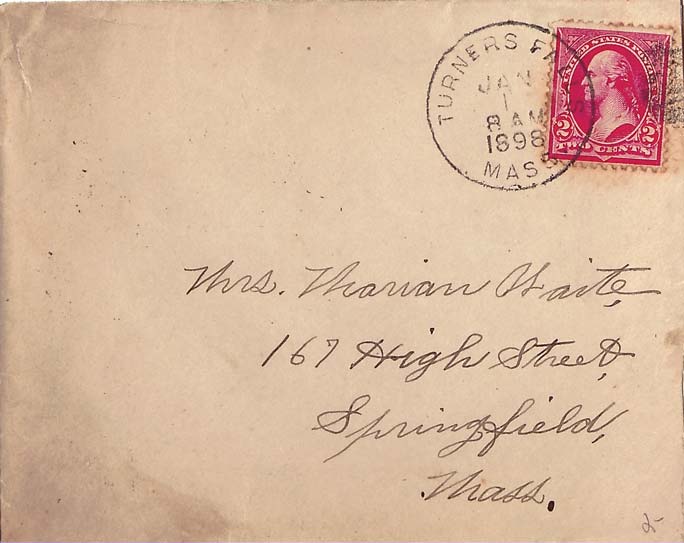 TURNERS FALLS
JAN
1
8 AM
1898
MASS
UNITED STATES POSTAGE
2 2
TWO CENTS
Mrs. Marian Waite,
167 High Street,
Springfield,
Mass.